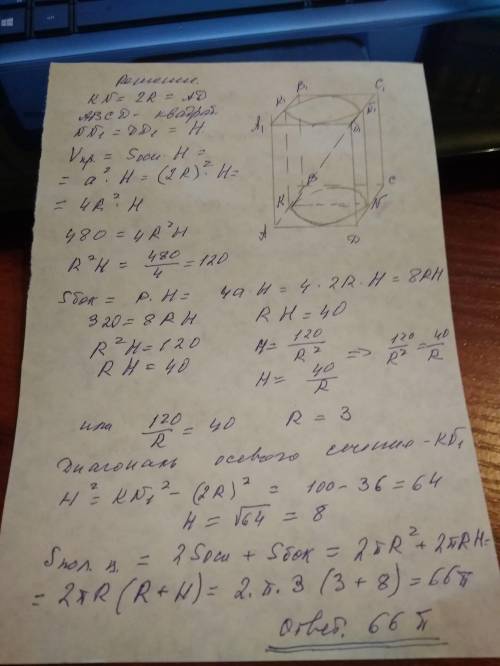 Решение.
KN = 2R = AD
ABCD - квадрат
NN₁ = DD₁ = H
Vпр. = Sосн. H =
= a² · H = (2R)² · H =
= 4R² · H
480 = 4R²H
R²H = 480/4 = 120
Sбок = P. H = 4a H = 4 · 2R · H = 8RH
320 = 8RH RH = 40
R²H = 120 H = 120/R² => 120/R² = 40/R
RH = 40 H = 40/R
или 120/R = 40 R = 3
Диагональ осевого сечения - KN₁
H² = KN₁² - (2R)² = 100 - 36 = 64
H = √64 = 8
Sпол. ц. = 2Sосн + Sбок = 2πR² + 2πRH =
= 2πR (R + H) = 2. π. 3 (3 + 8) = 66π
Ответ. 66 π
K₁ B₁ C₁
A₁ N₁
D₁
B C
K N
A D